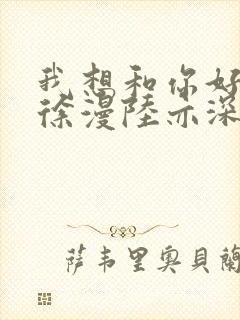 我想和你好
徐漫陸亦深
萨韦里奥贝蘭